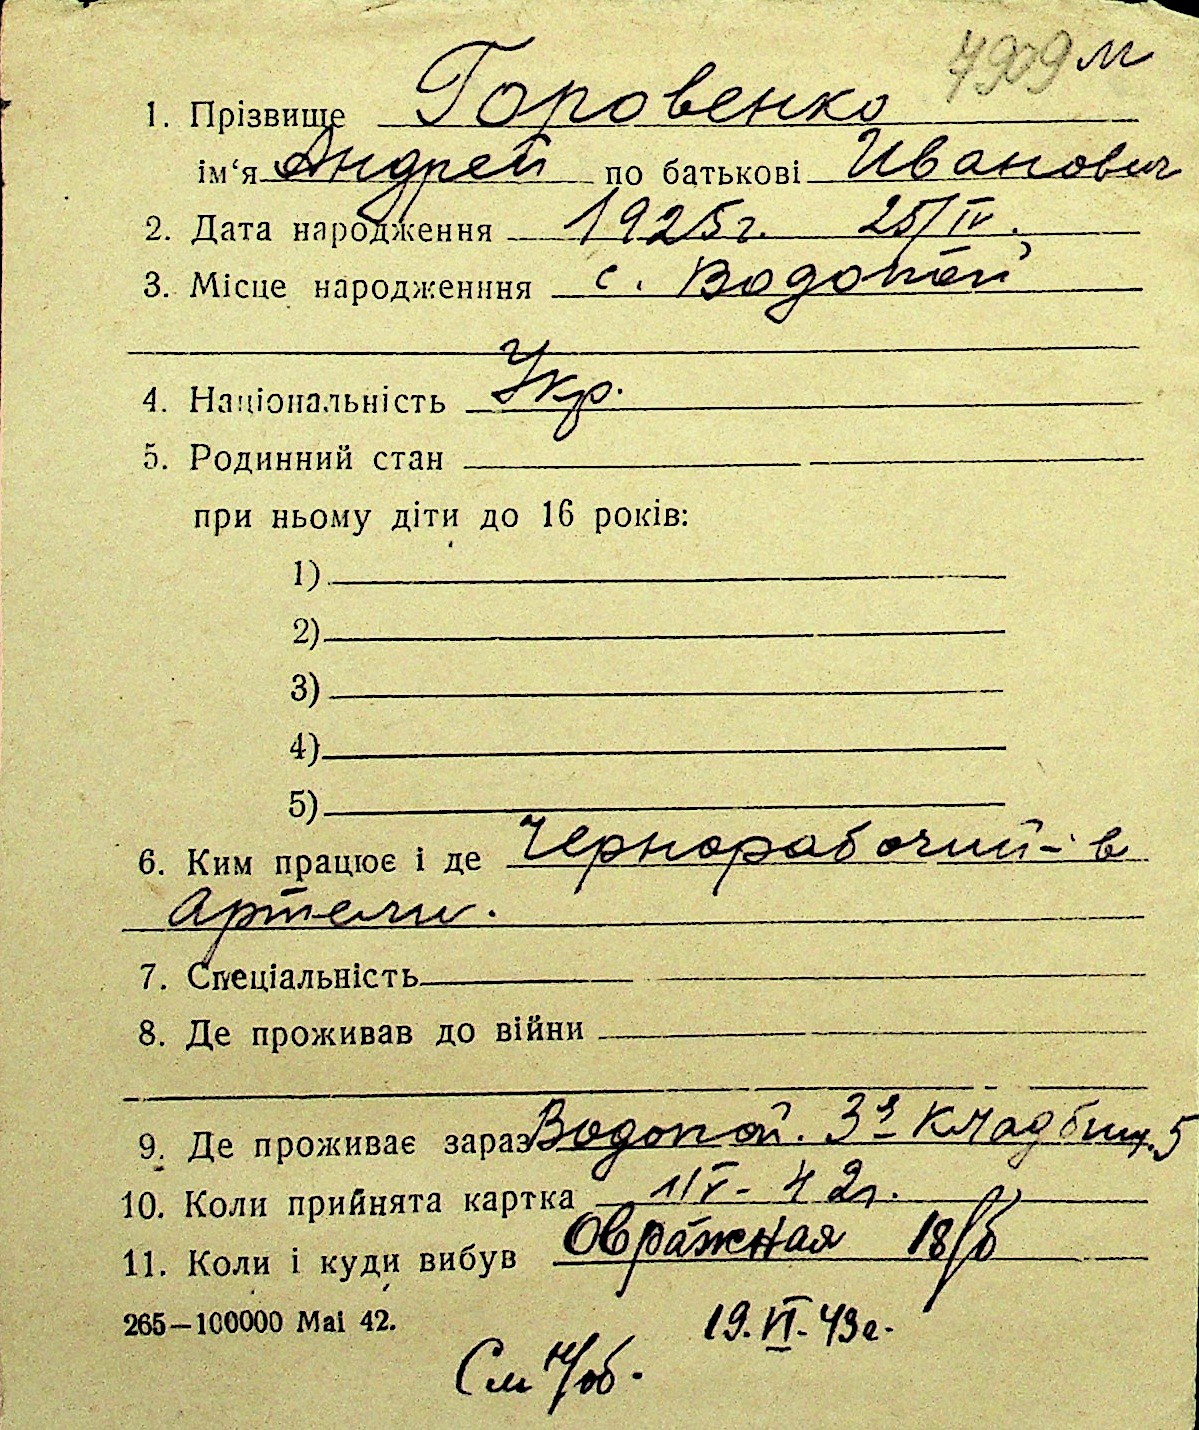 7909 м
1. Прізвище Горовенко
ім‘я Андрей по батькові Иванович
2. Дата народження 1925г. 25/IV.
3. Місце народженння с. Водопой
4. Національність Укр.
5. Родинний стан
при ньому діти до 16 років:
1)
2)
3)
4)
5)
6. Ким працює і де Чернорабочий - в
Артели.
7. Спеціальність
8. Де проживав до війни
9. Де проживає зараз Водопой. 3я Кладбищ. 5
10. Коли прийнята картка 1/V - 42г.
11. Коли і куди вибув Овражная 18/б
265—100000 Mai 42. 19.VI-43г.
См н/об.